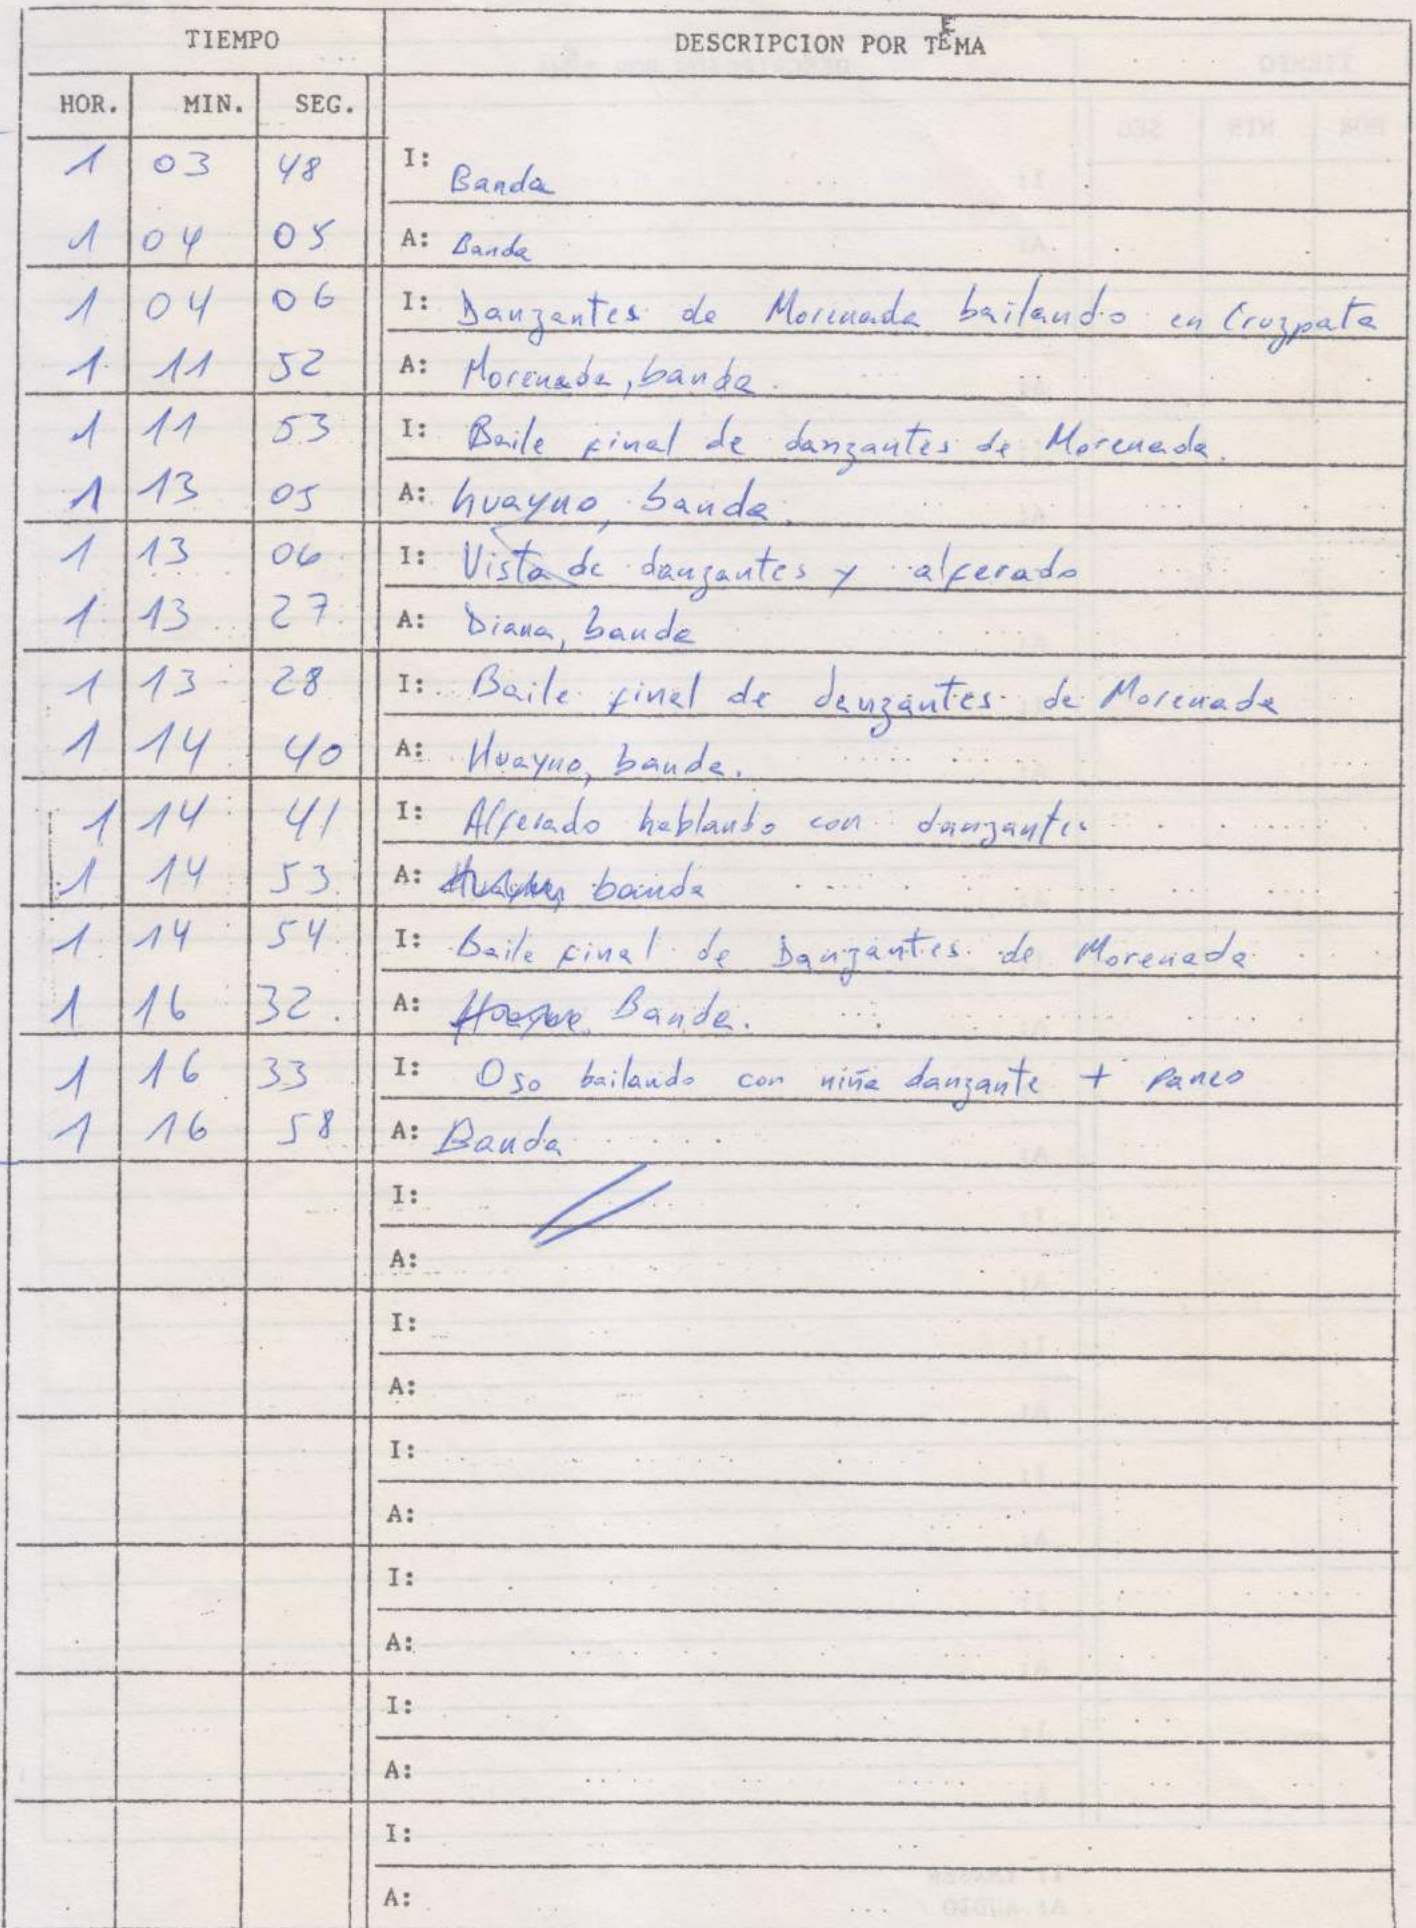 TIEMPO DESCRIPCION POR TEMA
HOR. MIN. SEG.
1 03 48 I: Banda
1 04 05 A: Banda
1 04 06 I: Danzantes de Morenada bailando en Cruzpata
1 11 52 A: Morenada, banda.
1 11 53 I: Baile final de danzantes de Morenada.
1 13 05 A: huayno, banda.
1 13 06 I: Vista de danzantes y alferado
1 13 27 A: Diana, banda
1 13 28 I: Baile final de danzantes de Morenada
1 14 40 A: Huayno, banda.
1 14 41 I: Alferado hablando con danzantes
1 14 53 A: banda
1 14 54 I: Baile final de Danzantes de Morenada
1 16 32. A: Banda.
1 16 33 I: Oso bailando con niña danzante + Paneo
1 16 58 A: Banda
I:
A:
I:
A:
I:
A:
I:
A:
I:
A:
I:
A: